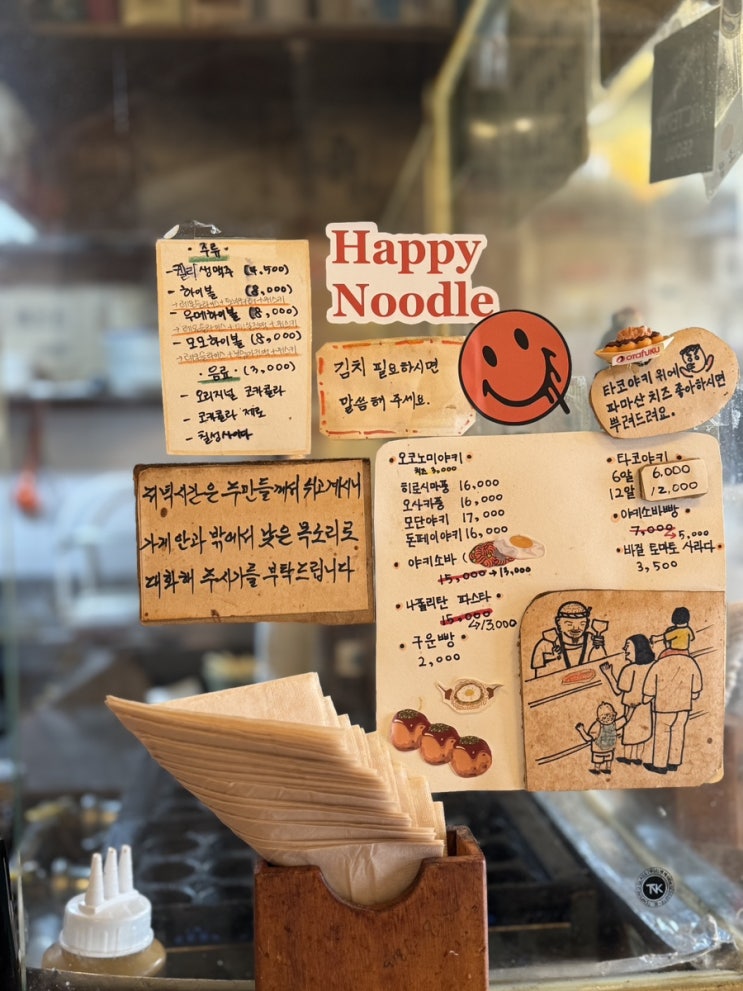 ·주류·
-켈리 생맥주 (4,500)
-하이볼 (8,000)
-우메하이볼 (8,000)
-모모하이볼 (8,000)
·음료· (3,000)
- 오리지널 코카콜라
- 코카콜라 제로
- 칠성사이다
Happy
Noodle
김치 필요하시면
말씀해 주세요.
OTAFUKU
타코야키 위에
파마산 치즈 좋아하시면
뿌려드려요.
저녁시간은 주민들께서 쉬고계시니
가게 안과 밖에서 낮은 목소리로
대화해 주시기를 부탁드립니다
·오코노미야키·
치즈 3,000
히로시마풍 16,000
오사카풍 16,000
모단야키 17,000
돈페이야키 16,000
·야키소바 (
15,000→13,000
·나폴리탄 파스타·
15,000
↳13,000
·구운빵·
2,000
·타코야키·
6알 6,000
12알 12,000
·야키소바빵·
7,000
↳5,000
·바질 토마토 사라다·
3,500
TVK